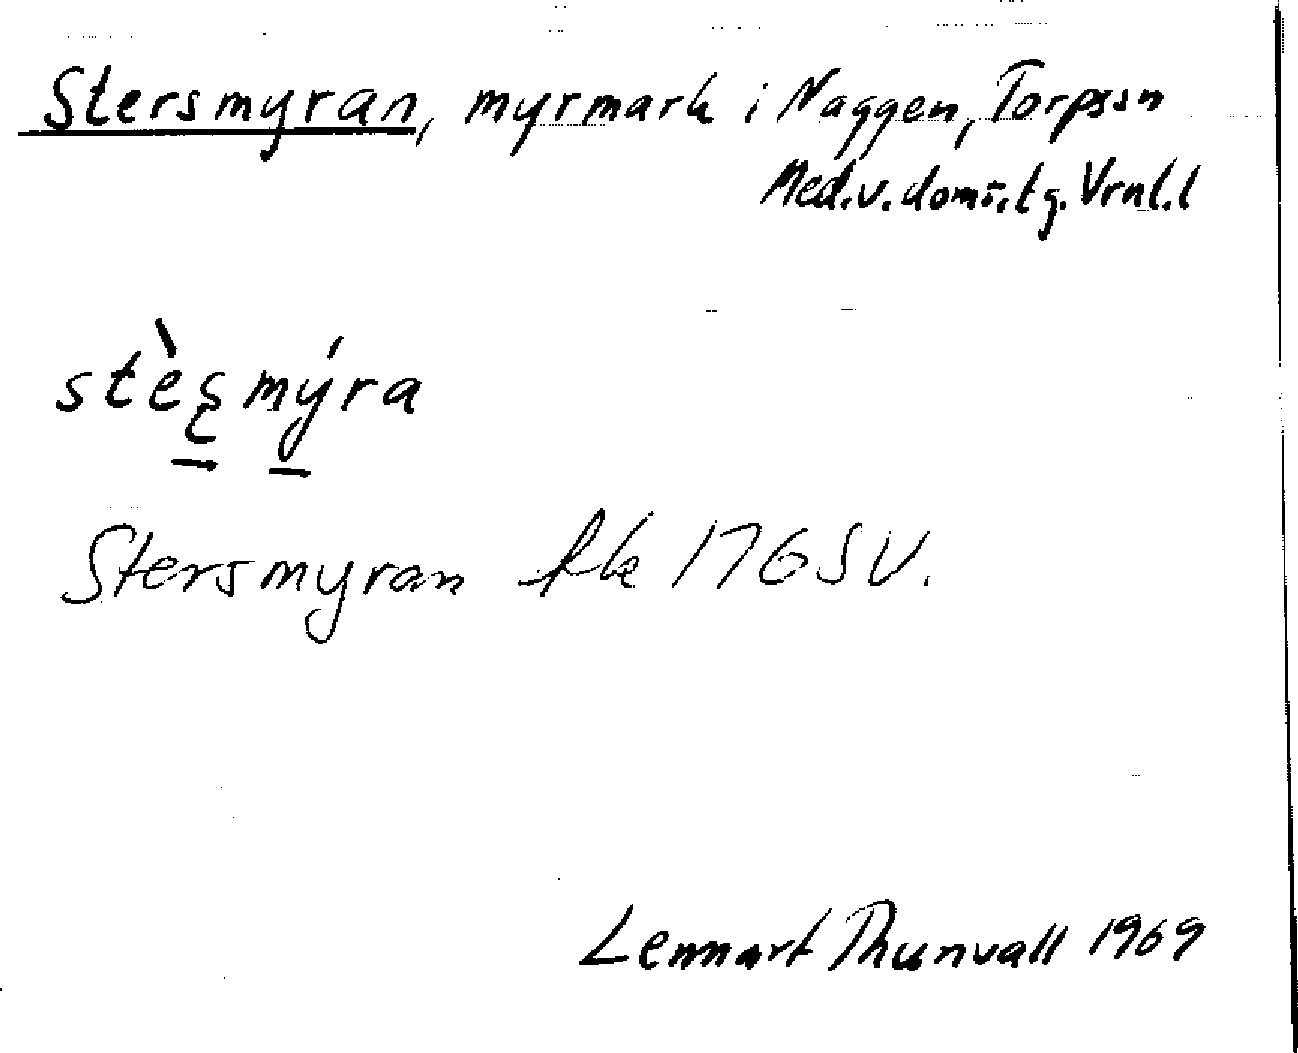 Stersmyran, myrmark i Naggen, Torpssn
Med.v. doms.tg. Vrnl.l
stè̠ʂmý̠ra
Stersmyran fk 17G SV.
Lennart Thunvall 1969